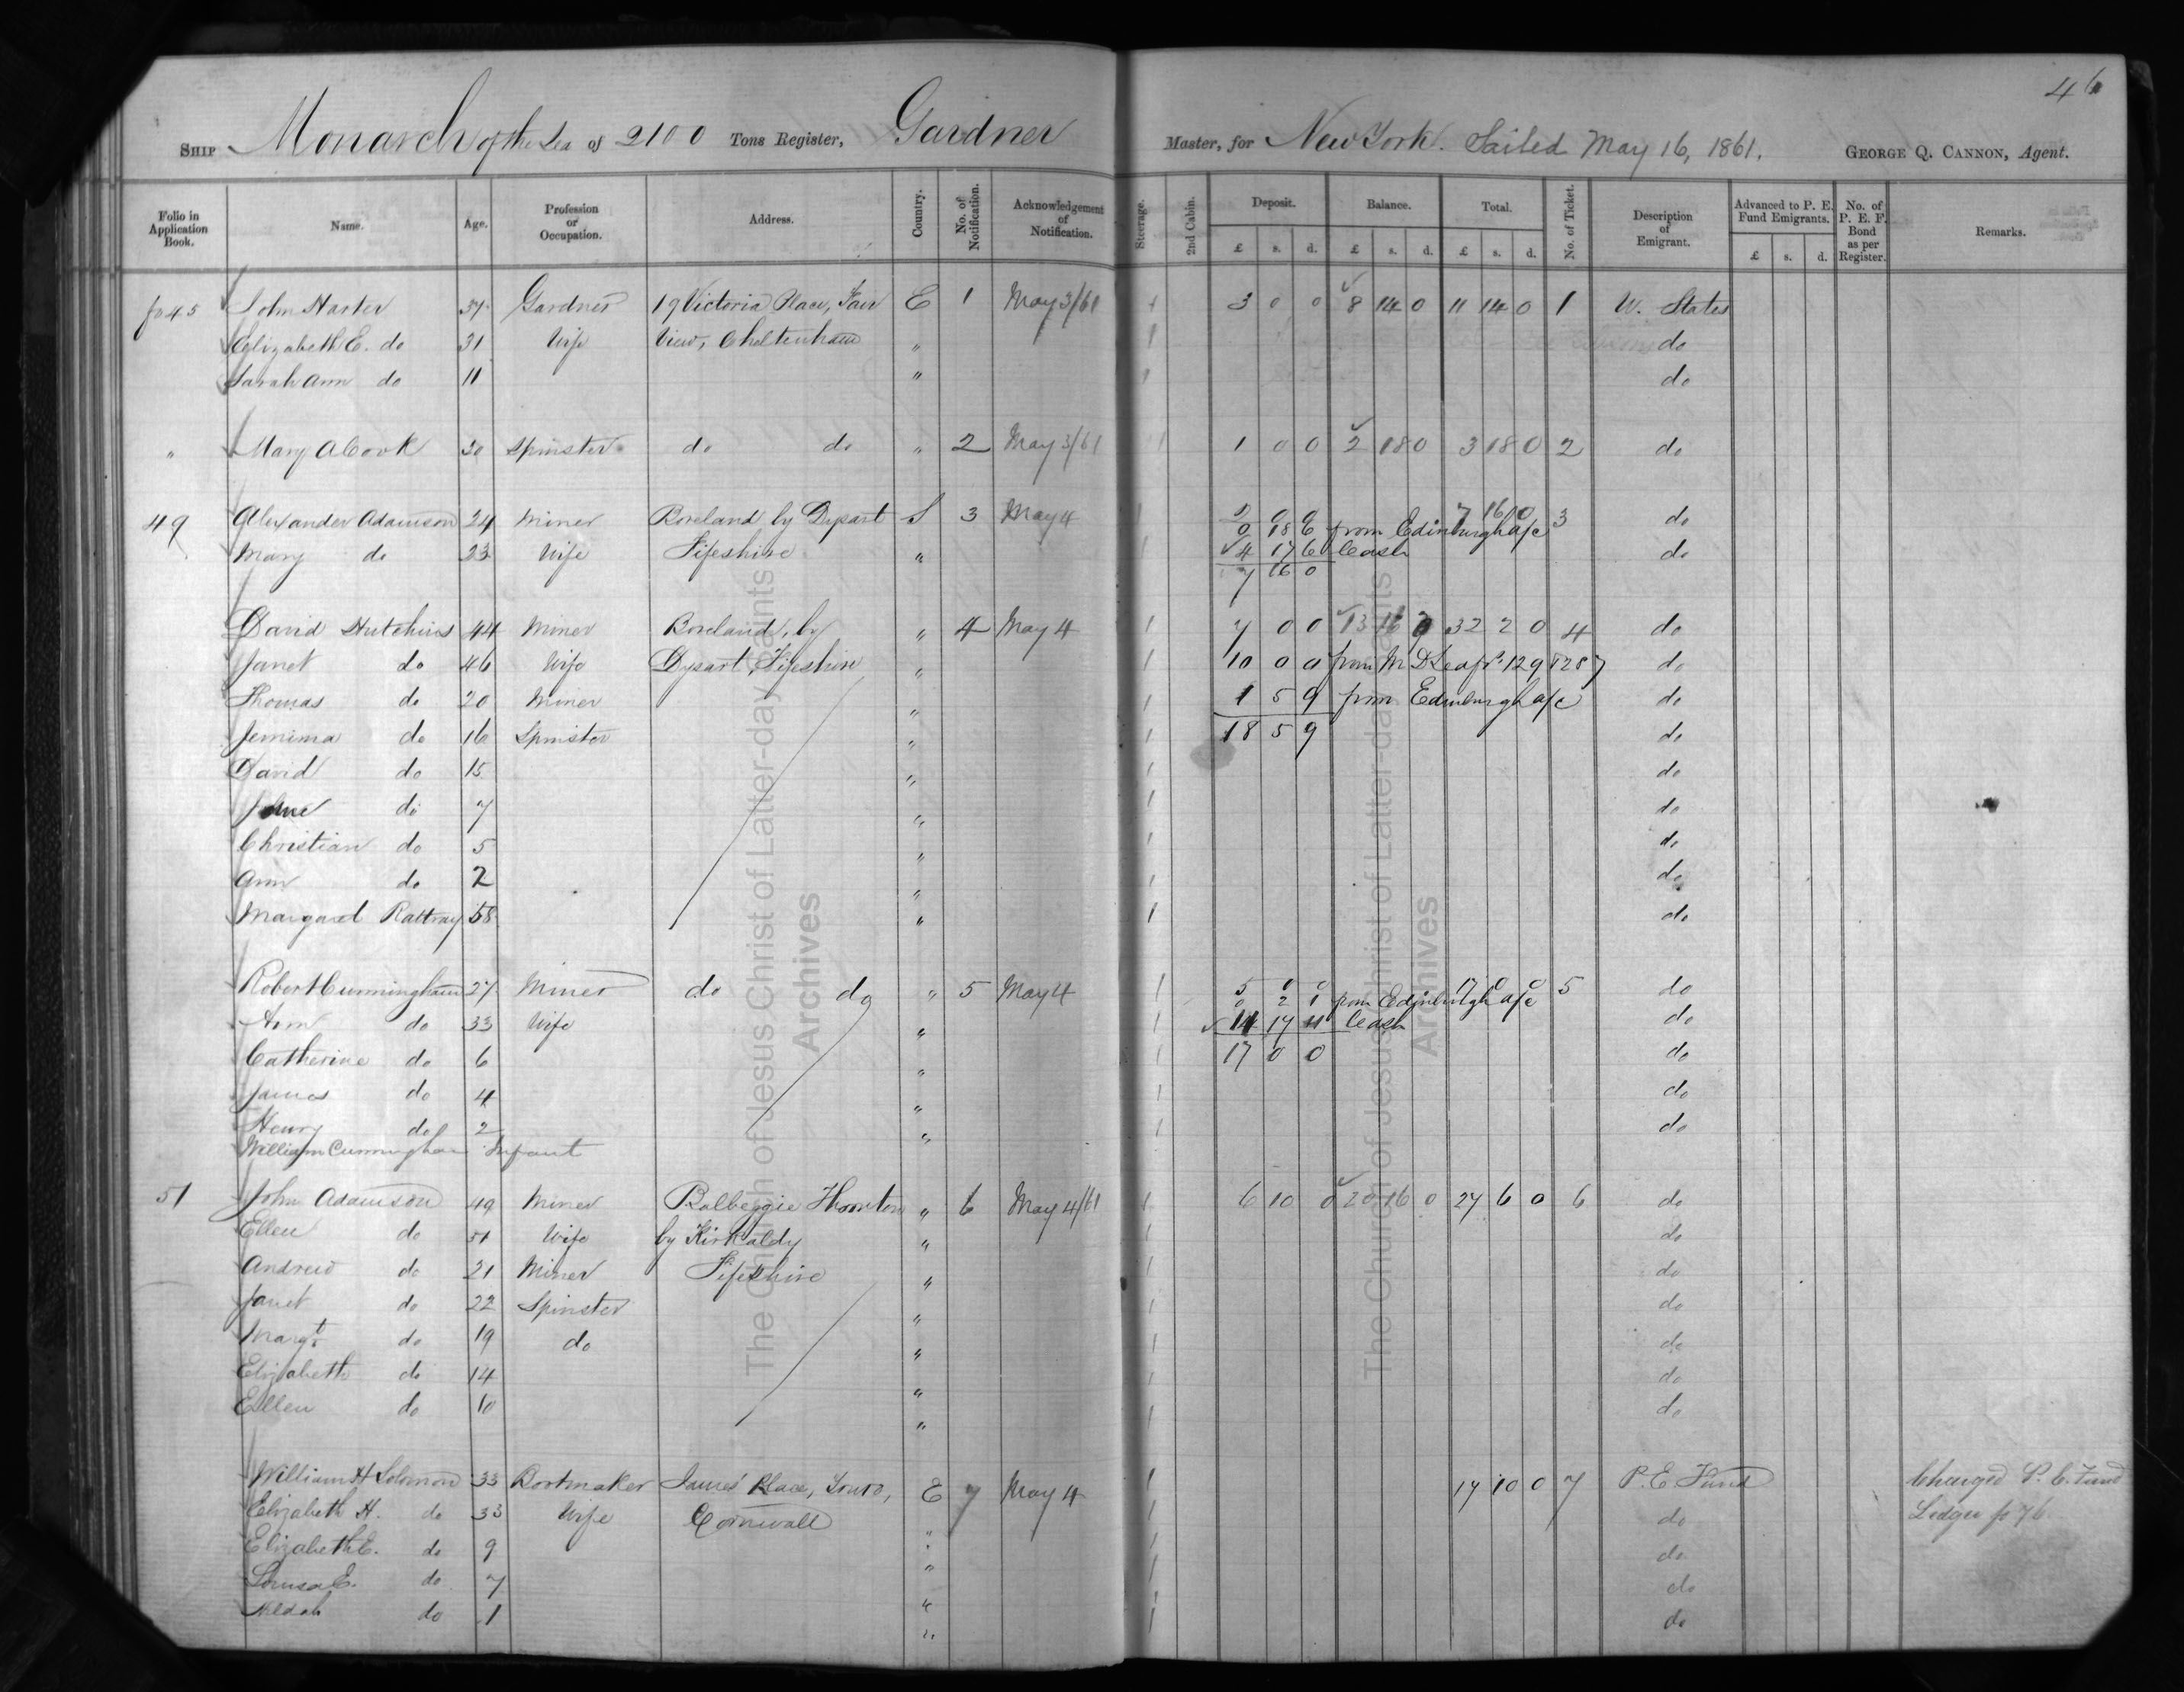 46
SHIP Monarch of the Sea of 2100 Tons Register, Gardner Master, for New York. Sailed May 16, 1861. GEORGE Q. CANNON, Agent.
Folio in Application Book. Name. Age. Profession or Occupation. Address. Country. No. of Notification. Acknowledgement of Notification. Steerage. 2nd Cabin. Deposit. Balance. Total. No. of Ticket. Description of Emigrant. Advanced to P. E. Fund Emigrants. No. of P. E. F. Bond as per Register. Remarks.
£ s. d. £ s. d. £ s. d. £ s. d.
fo 45 John Harter 37 Gardner 19 Victoria Place, Fair E 1 May 3/61 1 3 0 0 8 14 0 11 14 0 1 U. States
Elizabeth E. do 31 Wife View, Cheltenham " 1 do
Sarah Ann do 11 " 1 do
" Mary A Cook 30 Spinster do do " 2 May 3/61 1 1 0 0 2 18 0 3 18 0 2 do
49 Alexander Adamson 24 Miner Boreland by Dysart S 3 May 4 1 2 0 0 7 16 0 3 do
0 18 6 from Edinburgh a/c
Mary do 23 Wife Fifeshire " 1 4 17 6 Cash do
7 16 0
David Hutchins 44 Miner Boreland, by " 4 May 4 1 7 0 0 13 16 32 2 0 4 do
Janet do 46 Wife Dysart, Fifeshire " 1 10 0 0 from do
Thomas do 20 Miner " 1 1 5 9 from Edinburgh a/c do
Jemima do 16 Spinster " 1 18 5 9 do
David do 15 " 1 do
Jane do 7 " 1 do
Christian do 5 " 1 do
Ann do 2 " 1 do
Margaret Rattray 58 " 1 do
Robert Cunningham 27 Miner do do " 5 May 4 1 5 0 0 17 0 0 5 do
0 2 1 from Edinburgh a/c
Ann do 33 Wife " 1 11 17 11 Cash do
Catherine do 6 " 1 17 0 0 do
James do 4 " 1 do
Henry do 2 " 1 do
William Cunningham Infant
51 John Adamson 49 Miner Balbeggie Thornton " 6 May 4/61 1 6 10 0 20 16 0 27 6 0 6 do
Ellen do 51 Wife by Kirkaldy " 1 do
Andrew do 21 Miner Fifeshire " 1 do
Janet do 22 Spinster " 1 do
Margt. do 19 do " 1 do
Elizabeth do 14 " 1 do
Ellen do 10 " 1 do
William H Solomon 33 Bootmaker James' Place, Truro, E 7 May 4 1 17 10 0 7 P. E. Fund Charged P. E. Fund
Elizabeth H. do 33 Wife Cornwall " 1 do Ledger fo 76
Elizabeth E. do 9 " 1 do
Louisa E. do 7 " 1 do
do 1 " 1 do
The Church of Jesus Christ of Latter-day Saints
Archives
The Church of Jesus Christ of Latter-day Saints
Archives